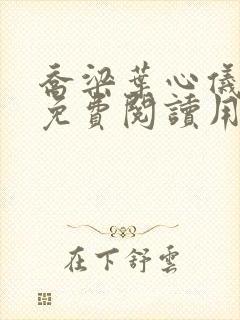 喬梁葉心儀
免費閱讀用
在下舒雲